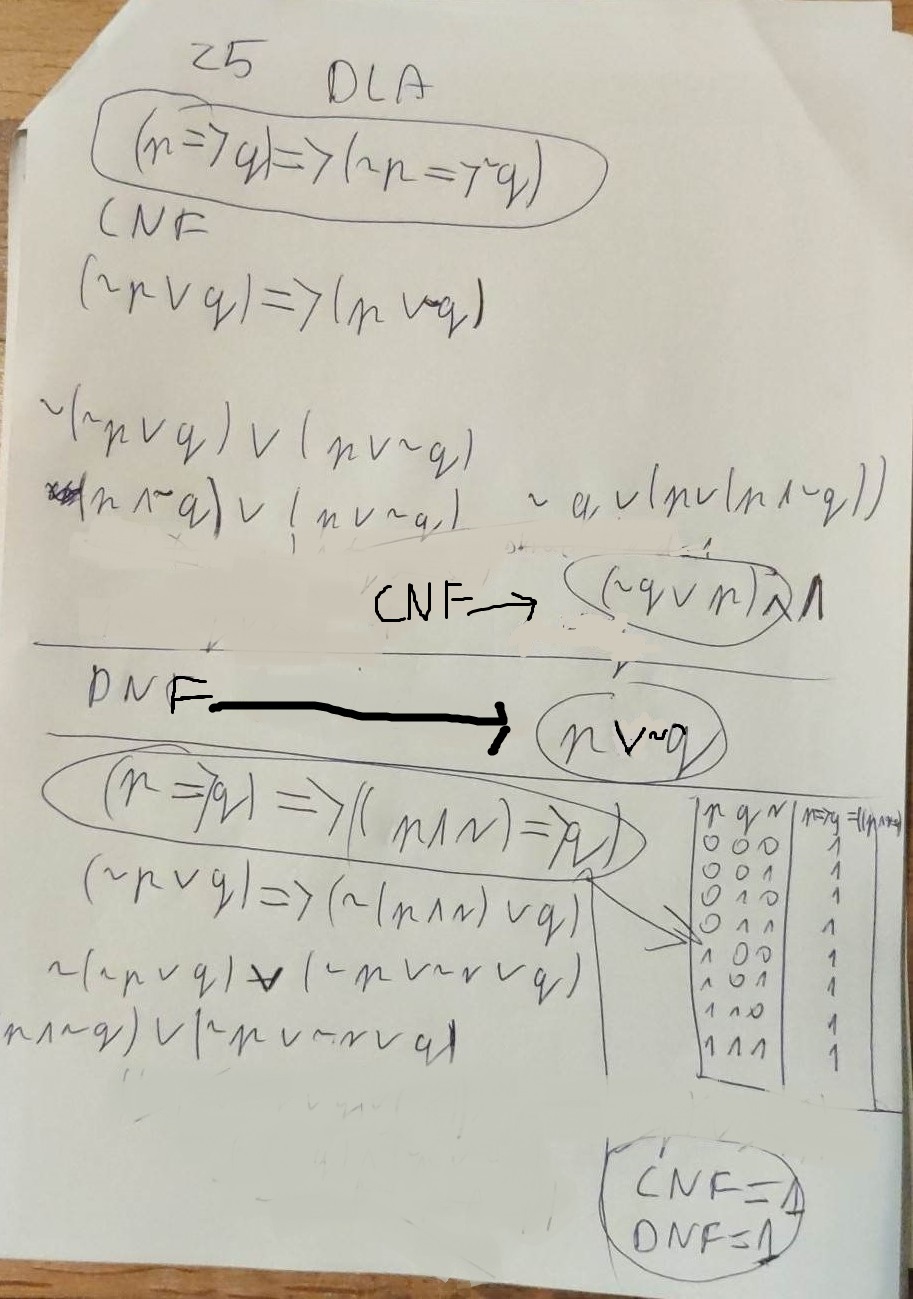 25 DLA
(p=>q)=>(~p=>~q)
CNF
(~p∨q)=>(p∨~q)
~(~p∨q)∨(p∨~q)
(p∧~q)∨(p∨~q) ~q∨(p∨(p∧~q))
CNF→ (~q∨p)∧1
DNF→ p∨~q
(p=>q)=>((p∧r)=>q)
(~p∨q)=>(~(p∧r)∨q)
~(~p∨q)∨(~p∨~r∨q)
p∧~q)∨(~p∨~r∨q)
p q r p=>q=((p∧r=>q)
0 0 0 1
0 0 1 1
0 1 0 1
0 1 1 1
1 0 0 1
1 0 1 1
1 1 0 1
1 1 1 1
CNF=1
DNF=1